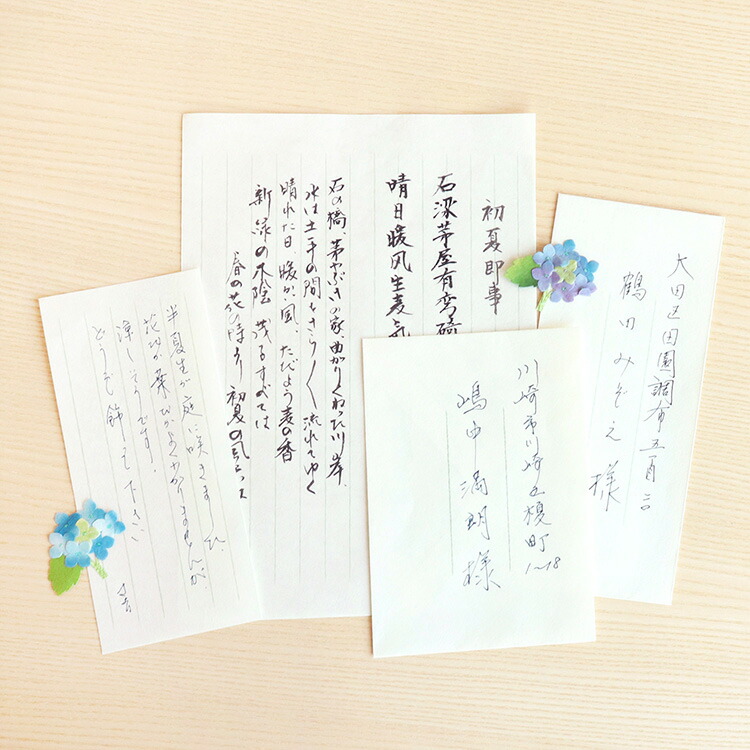 初夏即事
石梁茅屋有弯碕
晴日暖风生麦気
石の橋、茅ぶきの家、曲がりくねった川岸、
水は土手の間をさら／＼流れてゆく
晴れた日、暖かい風、ただよう麦の香
新緑の木陰 茂るすべては
春の花の時より 初夏の
半夏生が庭に咲きました、
花か葉かよくわかりませんが、
涼しそうです。
どうぞ飾って下さい
川崎市川崎区榎町
1~18
嶋中満明様
大田区田園調布五丁目
鶴田みぞえ様